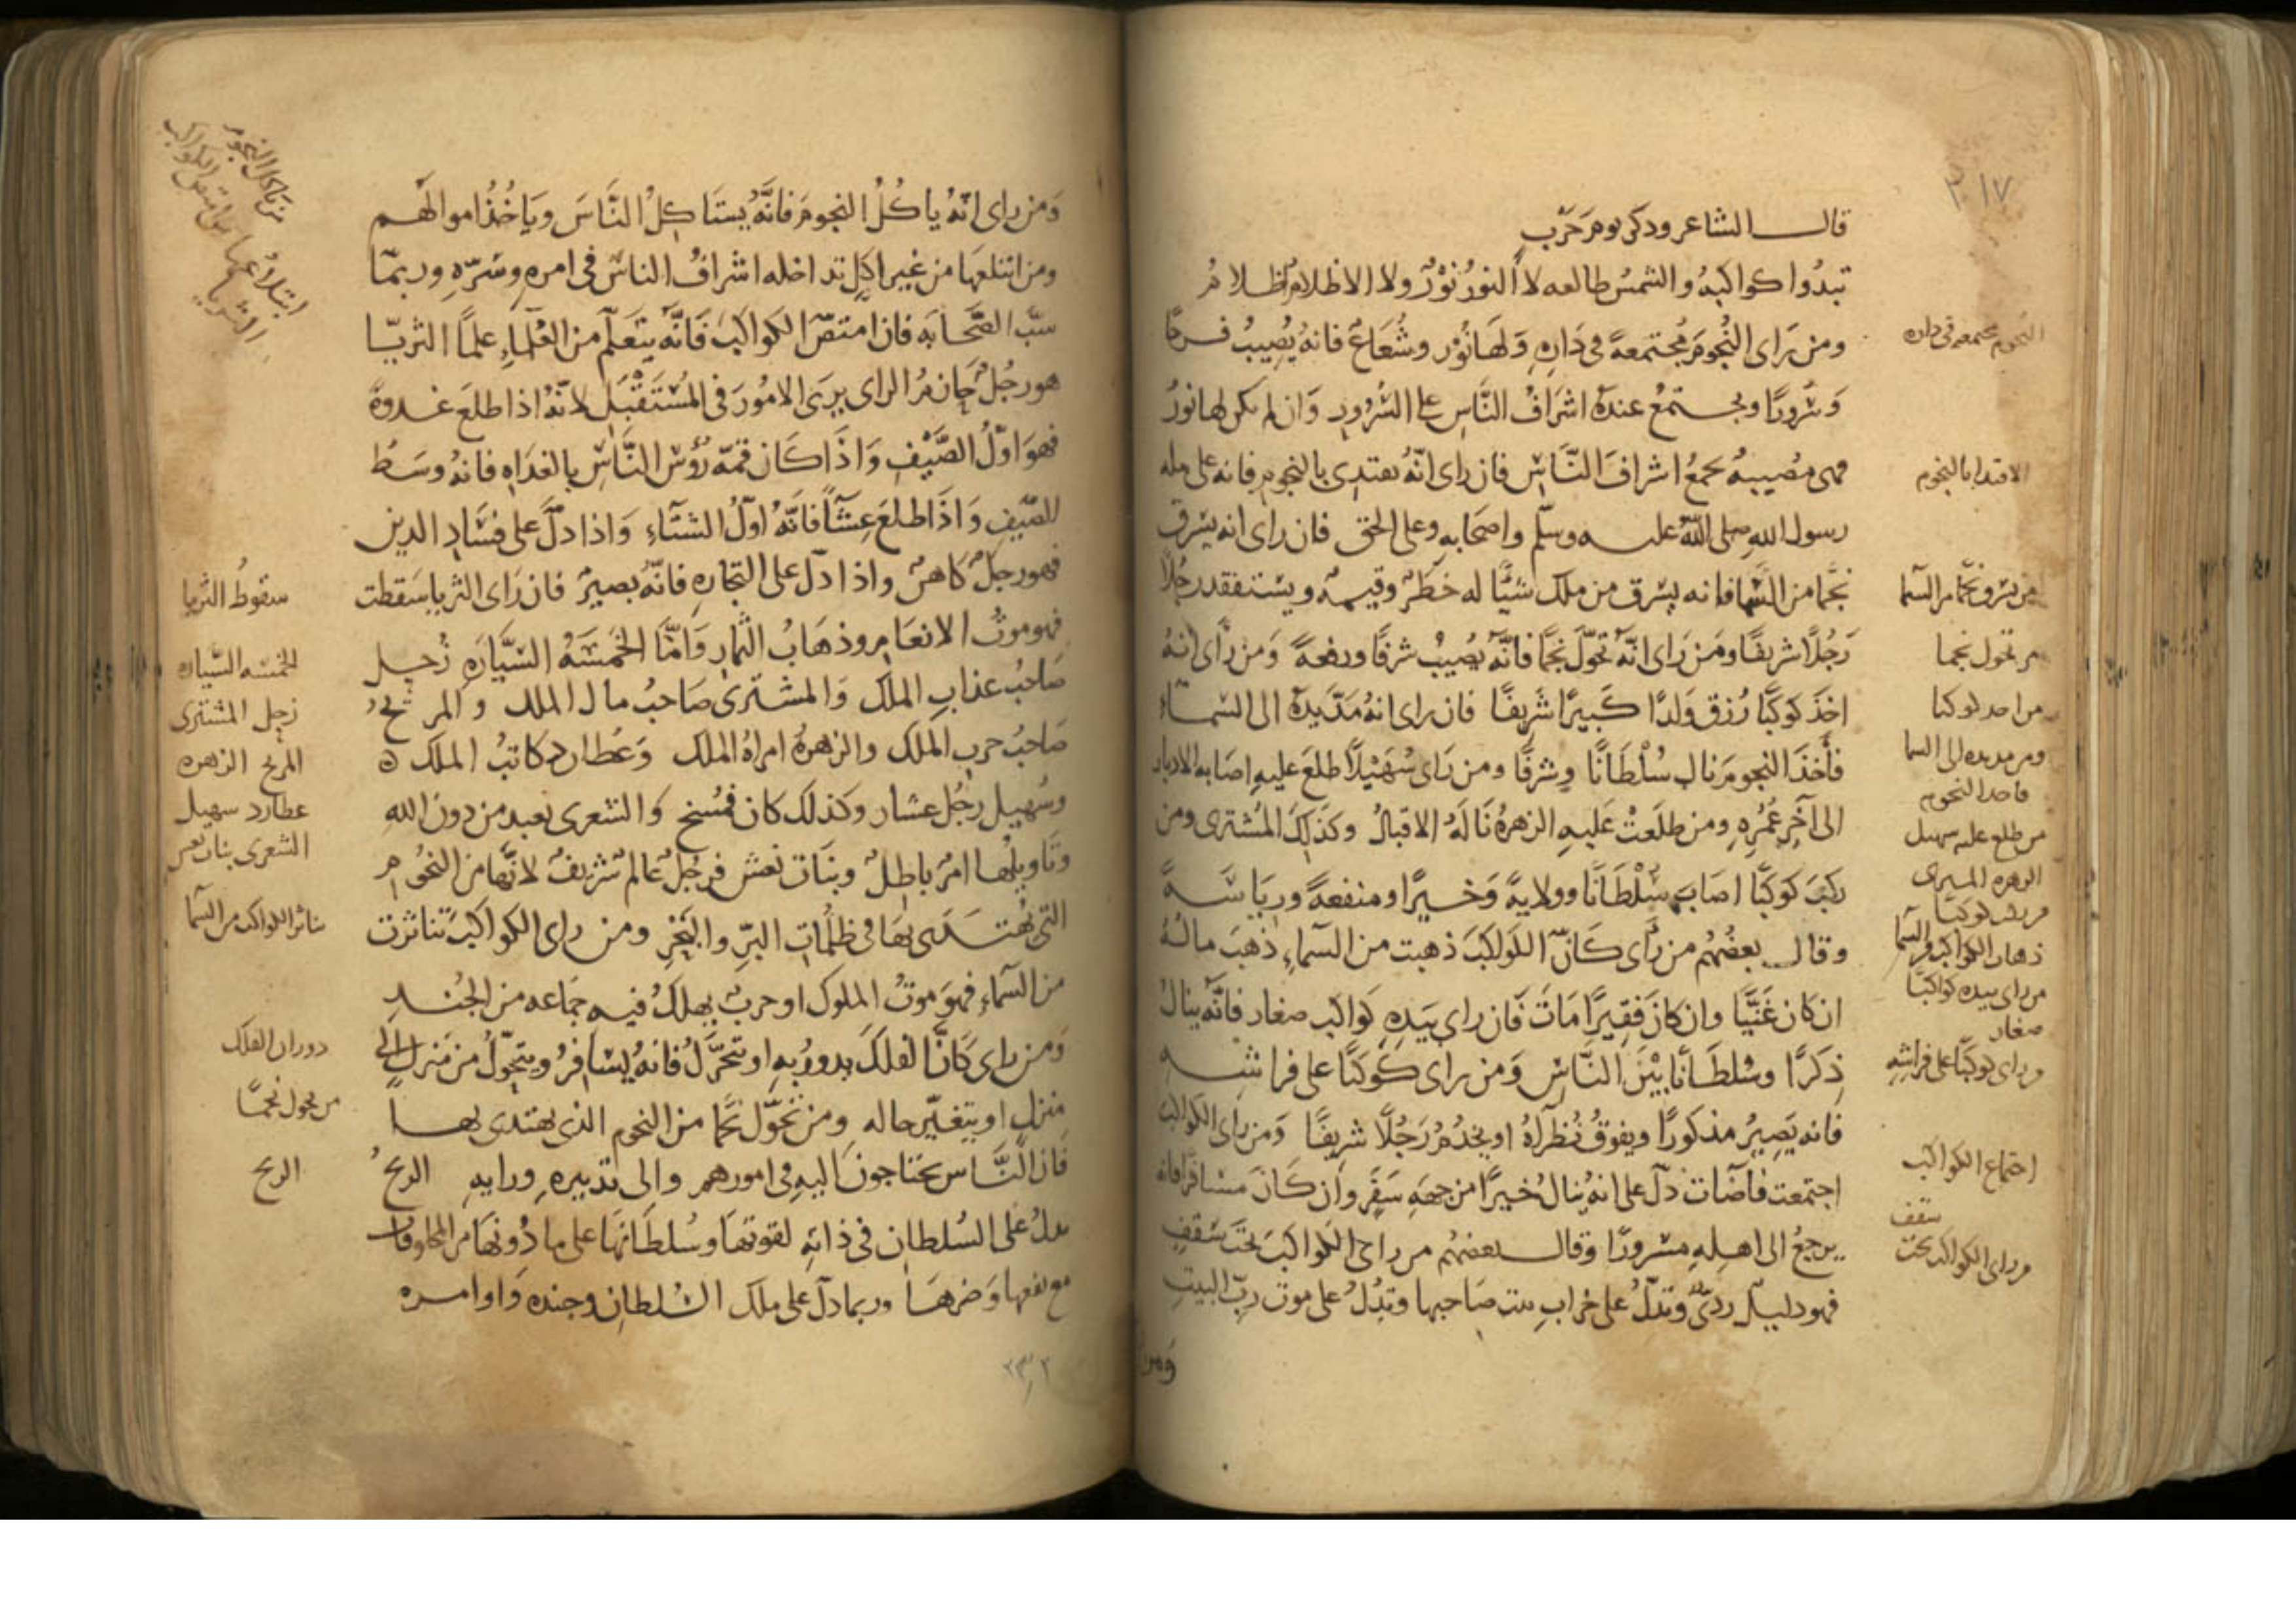 ٣١٧
قال الشاعر وذكر يوم حرب
تبدوا كواكبه والشمس طالعه لا النور نور ولا الاظلام اظلام
ومن راى النجوم مجتمعة في داره ولها نور وشعاع فانه يصيب فرحا
وسرورا ويجتمع عنده اشراف الناس على السرور وان لم يكن لها نور
فهى مصيبة تجمع اشراف الناس فان راى انه يقتدى بالنجوم فانه على مله
رسول الله صلى الله عليه وسلم واصحابه وعلى الحق فان راى انه يسرق
نجما من السما فانه يسرق من ملك شيئا له خطر وقيمه ويستنقد رجلا
رجلا شريفا ومن راى انه تحول نجما فانه يصيب شرفا ورفعة ومن راى انه
اخذ كوكبا رزق ولدا كبيرا شريفا فان راى انه مد يده الى السماء
فأخذ النجوم نال سلطانا وشرفا ومن راى سهيلا طلع عليه اصابه الادبار
الى آخر عمره ومن طلعت عليه الزهرة ناله الاقبال وكذلك المشترى ومن
ركب كوكبا اصاب سلطانا وولاية وخيرا ومنفعة ورياسة
وقال بعضهم من رأى كان الكواكب ذهبت من السماء ذهب ماله
ان كان غنيا وان كان فقيرا مات فان راى بيده كواكب صغار فانه ينال
ذكرا وسلطانا بين الناس ومن راى كوكبا على فراشه
فانه يصير مذكورا ويفوق نظراه او يخدم رجلا شريفا ومن راى الكواكب
اجتمعت فاضات دل على انه ينال خيرا من جهة سفر وان كان مسافرا فانه
يرجع الى اهله مسرورا وقال بعضهم من راى الكواكب تحت سقف
فهو دليل ردى وتدل على خراب بيت صاحبها وتدل على موت رب البيت
ومن
النجوم مجتمعه فى داره
الاقتدا بالنجوم
من يسرق نجما من السما
من تحول نجما
من اخذ كوكبا
ومن مد يده الى السما
فاخذ النجوم
من طلع عليه سهيل
الزهره المشترى
من ركب كوكبا
ذهاب الكواكب من السما
من راى بيده كواكبا
صغار
من راى كوكبا على فراشه
اجتماع الكواكب
سقف
من راى الكواكب تحت
ومن راى انه ياكل النجوم فانه يستاكل الناس وياخذ اموالهم
ومن ابتلعها من غير اكل تداخله اشراف الناس فى امره وسره وربما
سب الصحابه فان امتص الكواكب فانه يتعلم من العلماء علما الثريا
هو رجل حازم الراى يرى الامور فى المستقبل لانه اذا طلع غدوة
فهو اول الصيف واذا كان قمة رؤس الناس بالغداه فانه وسط
الصيف واذا طلع عشآ فانه اول الشتاء واذا دل على فساد الدين
فهو رجل كاهن واذا دل على التجاره فانه بصير فان راى الثريا سقطت
فهو موت الانعام وذهاب الثمار واما الخمسة السياره زحل
صاحب عذاب الملك والمشترى صاحب مال الملك والمريخ
صاحب حرب الملك والزهرة امراة الملك وعطارد كاتب الملك ه
وسهيل رجل عشار وكذلك كان فمسخ والشعرى تعبد من دون الله
وتاويلها امر باطل وبنات نعش فرجل عالم شريف لانها من النجوم
التى يهتدى بها فى ظلمات البر والبحر ومن راى الكواكب تناثرت
من السماء فهو موت الملوك او حرب يهلك فيه جماعه من الجند
ومن راى كان الفلك يدور به او تحرك فانه يسافر ويتحول من منزل الى
منزل او يتغير حاله ومن تحول نجما من النجوم الذى يهتدى بها
فان الناس يحتاجون اليه فى امورهم والى تدبيره ورايه الريح
تدل على السلطان فى ذاته لقوتها وسلطانها على ما دونها من المخلوقات
مع نفعها وضرها وربما دل على ملك السلطان وجنده واوامره
٢٣٢
من ياكل النجوم
سقوط الثريا
الخمسه السياره
زحل المشترى
المريخ الزهره
عطارد سهيل
الشعرى بنات نعش
تناثر الكواكب من السما
دوران الفلك
من تحول نجما
الريح